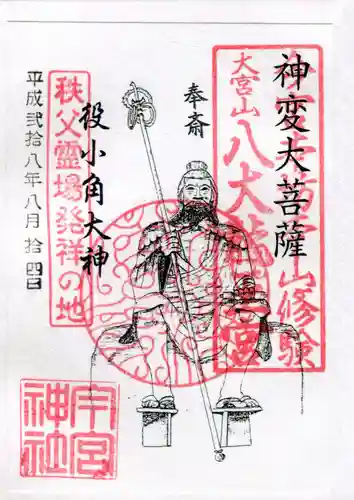 神變大菩薩
奉斎
役小角大神
平成弐拾八年八月拾四日
大宮山
八大龍
宮
山修験
秩父霊場発祥の地
今宮神社